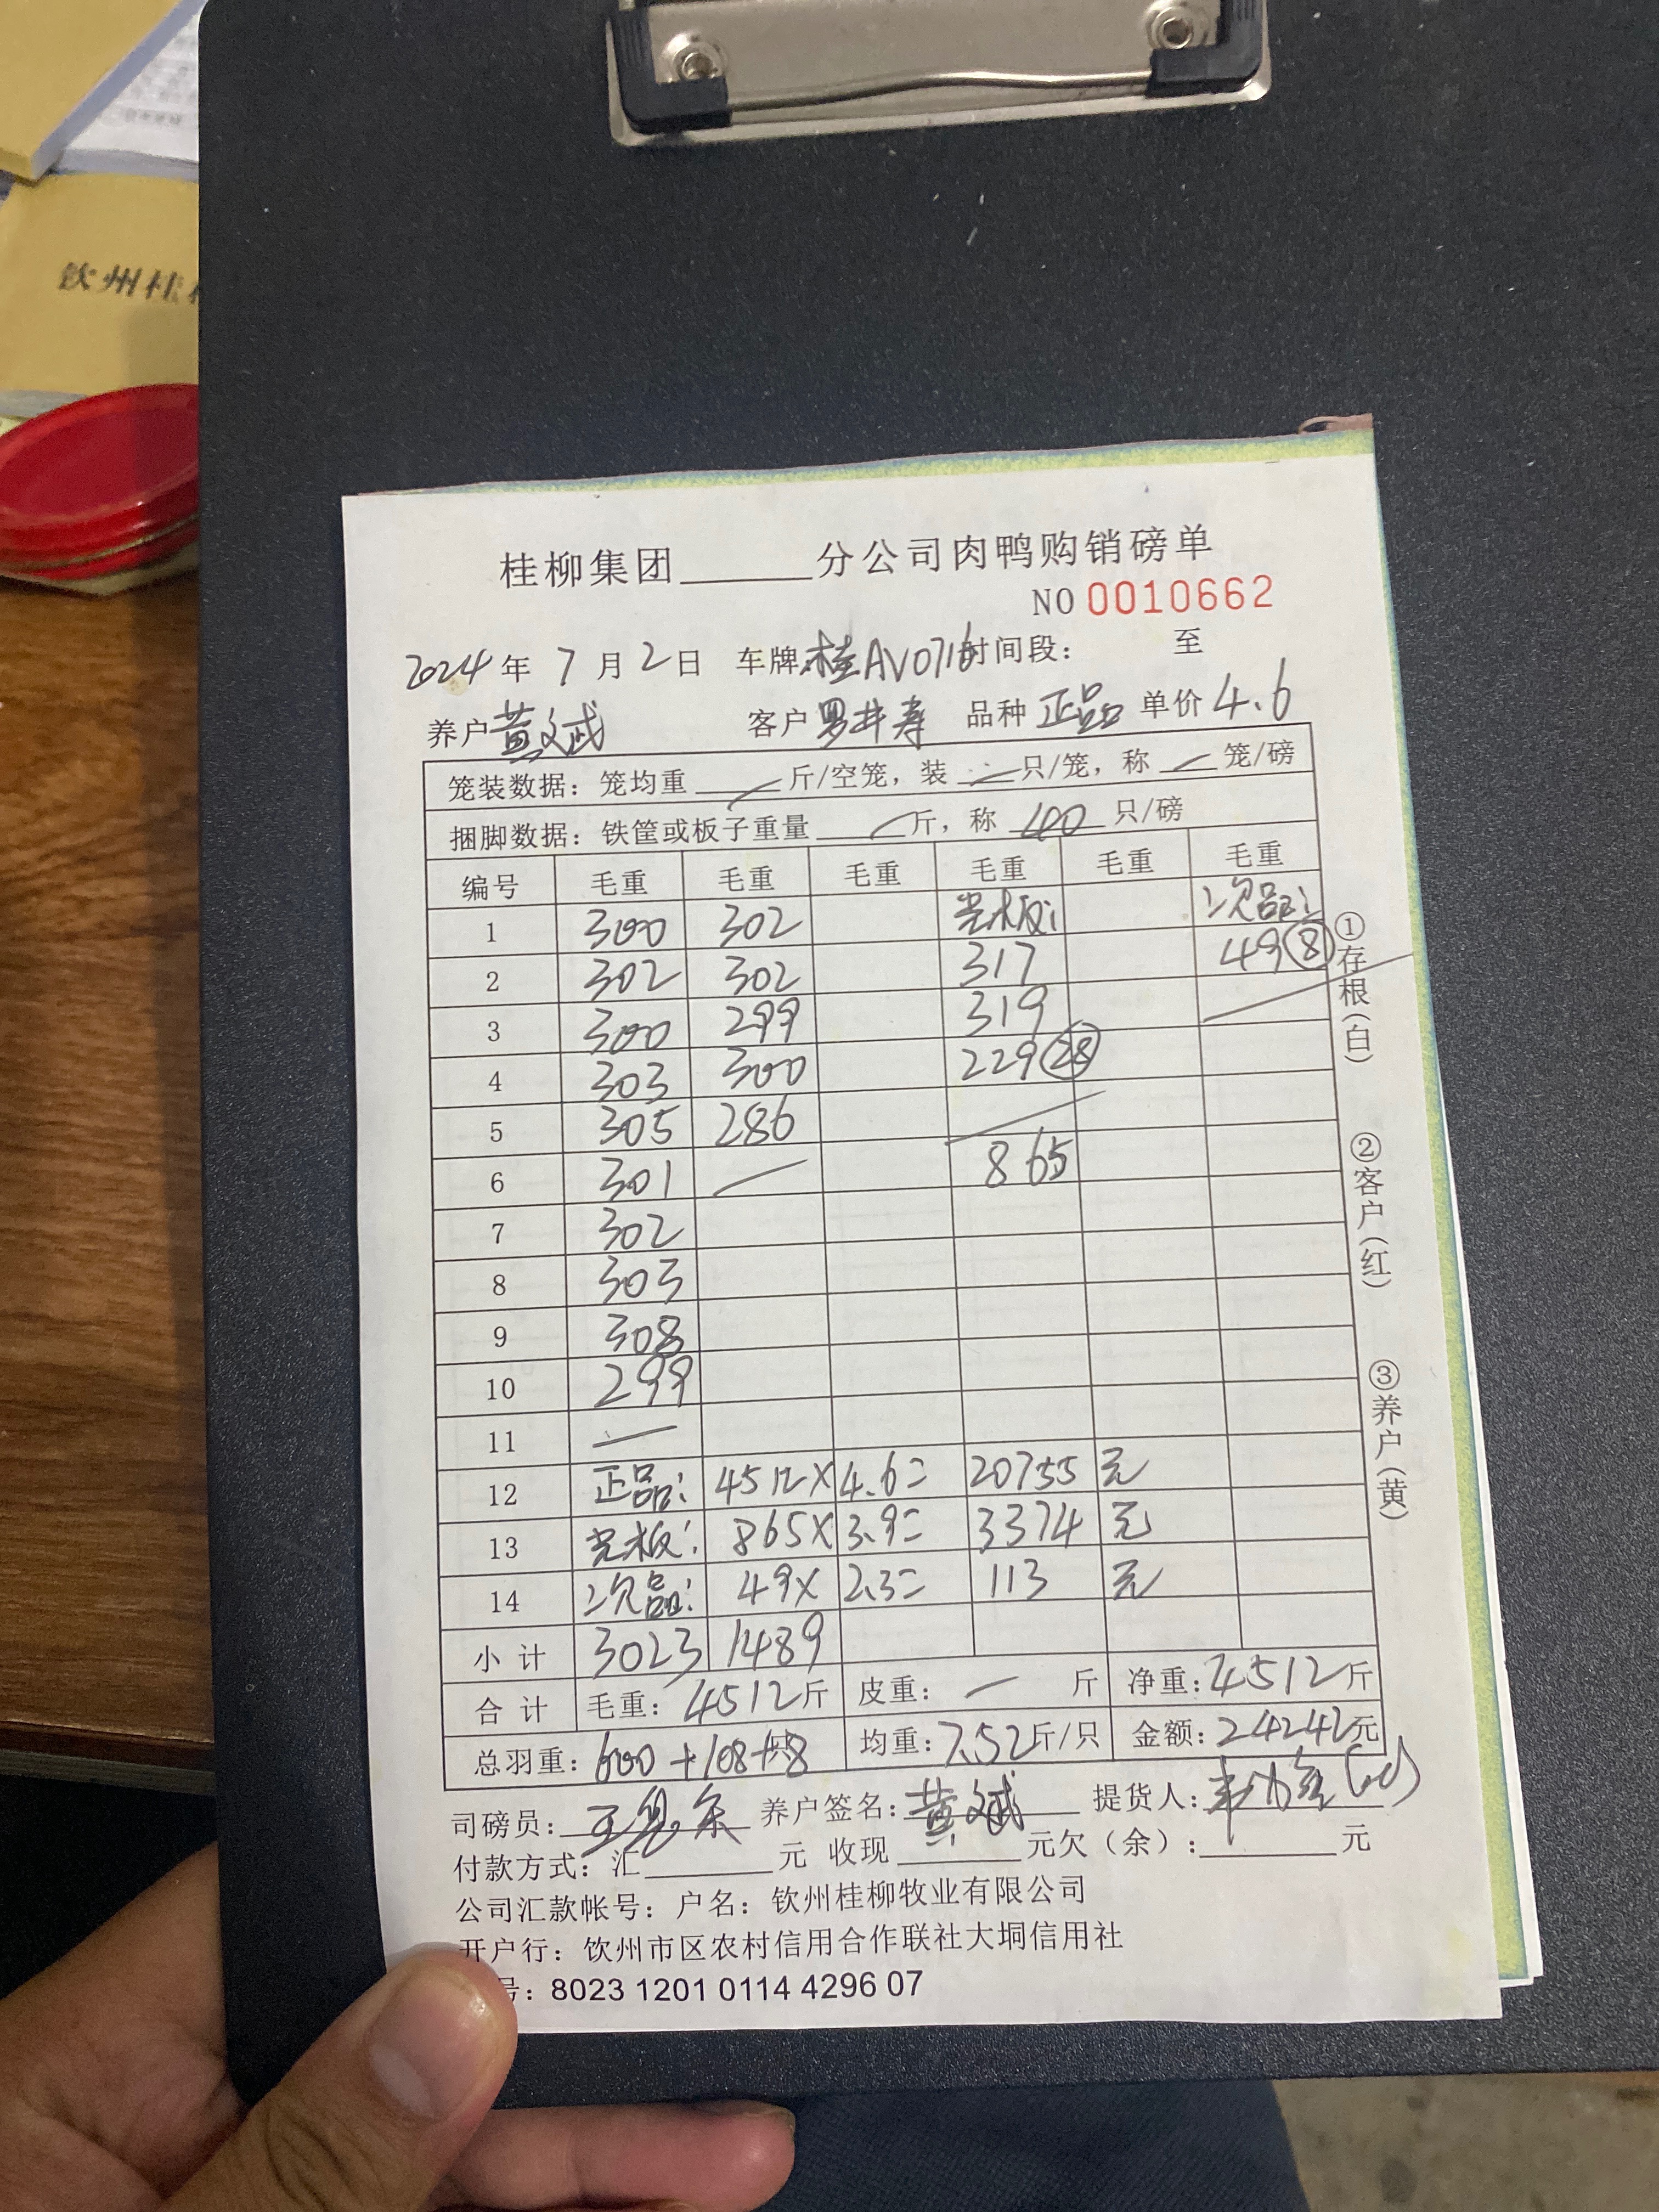 钦州桂
桂柳集团______分公司肉鸭购销磅单
NO 0010662
2024 年 7 月 2 日 车牌:桂AV0716 时间段: 至
养户 黄文斌 客户 罗井寿 品种 正品 单价 4.6
笼装数据: 笼均重 — 斤/空笼, 装 — 只/笼, 称 — 笼/磅
捆脚数据: 铁筐或板子重量 — 斤, 称 只/磅
编号 毛重 毛重 毛重 毛重 毛重 毛重
1 300 302 光板: 次品:
2 302 302 317 49 ⑧
3 300 299 319
4 303 300 229 ㉘
5 305 286
6 301 — 865
7 302
8 303
9 308
10 299
11 —
12 正品: 4512× 4.6= 20755 元
13 光板: 865× 3.9= 3374 元
14 次品: 49× 2.3= 113 元
小 计 3023 1489
合 计 毛重: 4512斤 皮重: — 斤 净重: 4512斤
总羽重: 600+108+8 均重: 7.52斤/只 金额: 24242元
司磅员: 养户签名: 黄文斌 提货人:
付款方式: 汇______元 收现______元欠(余):______元
公司汇款帐号: 户名: 钦州桂柳牧业有限公司
开户行: 钦州市区农村信用合作联社大垌信用社
号: 8023 1201 0114 4296 07
①存根(白)
②客户(红)
③养户(黄)